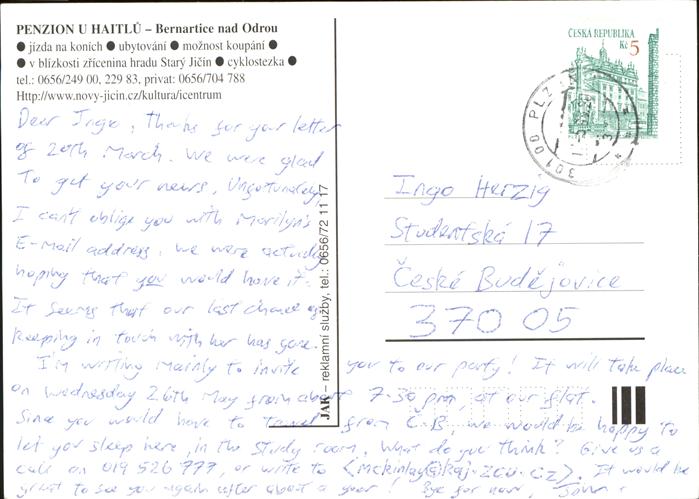 PENZION U HAITLŮ – Bernartice nad Odrou
● jízda na koních ● ubytování ● možnost koupání ●
● v blízkosti zřícenina hradu Starý Jičín ● cyklostezka ●
tel.: 0656/249 00, 229 83, privat: 0656/704 788
Http://www.novy-jicin.cz/kultura/icentrum
Dear Ingo, Thanks for your letter
of 20th March. We were glad
To get your news, Unfortunately,
I can't oblige you with Marilyn's
E-Mail address. We were actually
hoping that you would have it.
It seems that our last chance of
keeping in touch with her has gone.
I'm writing mainly to invite you to our party! It will take place
on Wednesday 26th May from about 7.30 pm, at our flat.
Since you would have to travel from Č.B., we would be happy to
let you sleep here, in the study room. What do you think? Give us a
call on 019 526 777, or write to <mckinlay@kaj.zcu.cz>. It would be
great to see you again after about a year! Bye for now,
JAK – reklamní služby, tel.: 0656/72 11 17
ČESKÁ REPUBLIKA
Kč 5
30100 PLZEŇ
Ingo Herzig
Studentská 17
České Budějovice
370 05